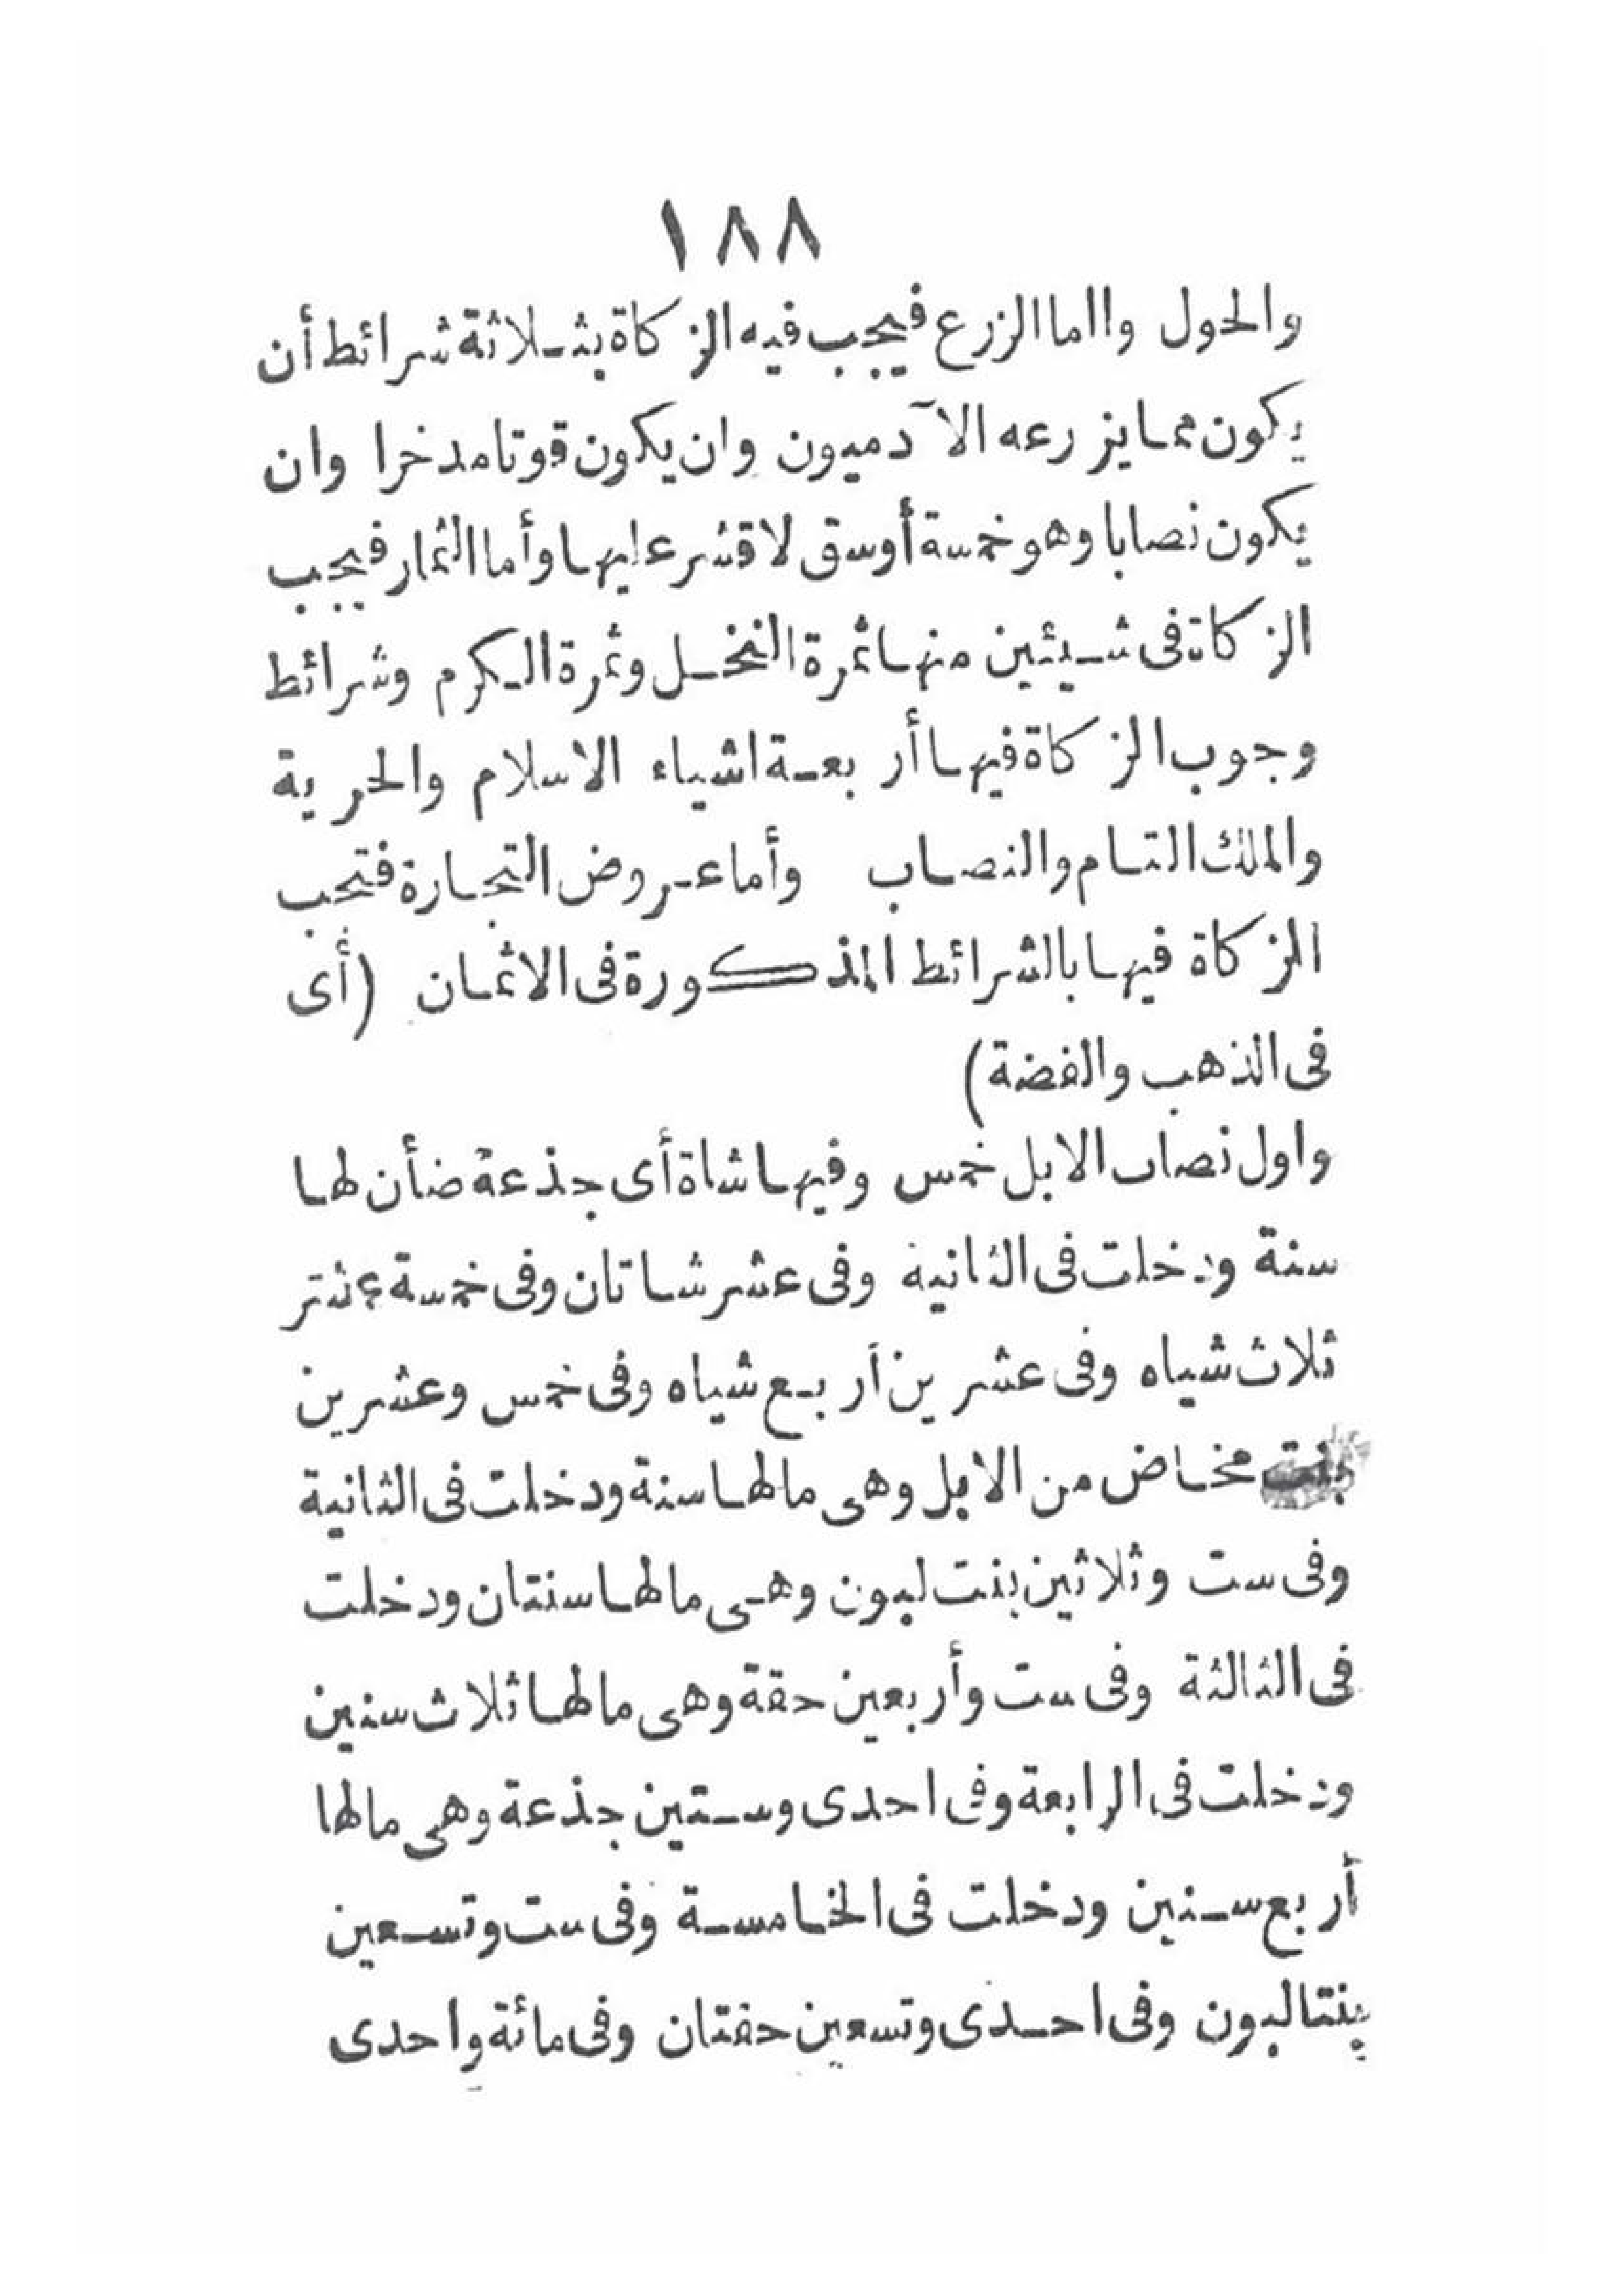 ١٨٨
والحول وااما الزرع فيجب فيه الزكاة بثلاثة شرائط أن
يكون مما يزرعه الآدميون وان يكون قوتا مدخرا وان
يكون نصابا وهو خمسة أوسق لا قشر عليها وأما الثمار فيجب
الزكاة فى شيئين منها ثمرة النخل وثمرة الكرم وشرائط
وجوب الزكاة فيها أربعة اشياء الاسلام والحرية
والملك التام والنصاب وأما عروض التجارة فتجب
الزكاة فيها بالشرائط المذكورة فى الاثمان (أى
فى الذهب والفضة)
واول نصاب الابل خمس وفيها شاة أى جذعة ضأن لها
سنة ودخلت فى الثانية وفى عشر شاتان وفى خمسة عشر
ثلاث شياه وفى عشرين أربع شياه وفى خمس وعشرين
بنت مخاض من الابل وهى مالها سنة ودخلت فى الثانية
وفى ست وثلاثين بنت لبون وهى مالها سنتان ودخلت
فى الثالثة وفى ست وأربعين حقة وهى مالها ثلاث سنين
ودخلت فى الرابعة وفى احدى وستين جذعة وهى مالها
أربع سنين ودخلت فى الخامسة وفى ست وتسعين
بنتا لبون وفى احدى وتسعين حقتان وفى مائة واحدى